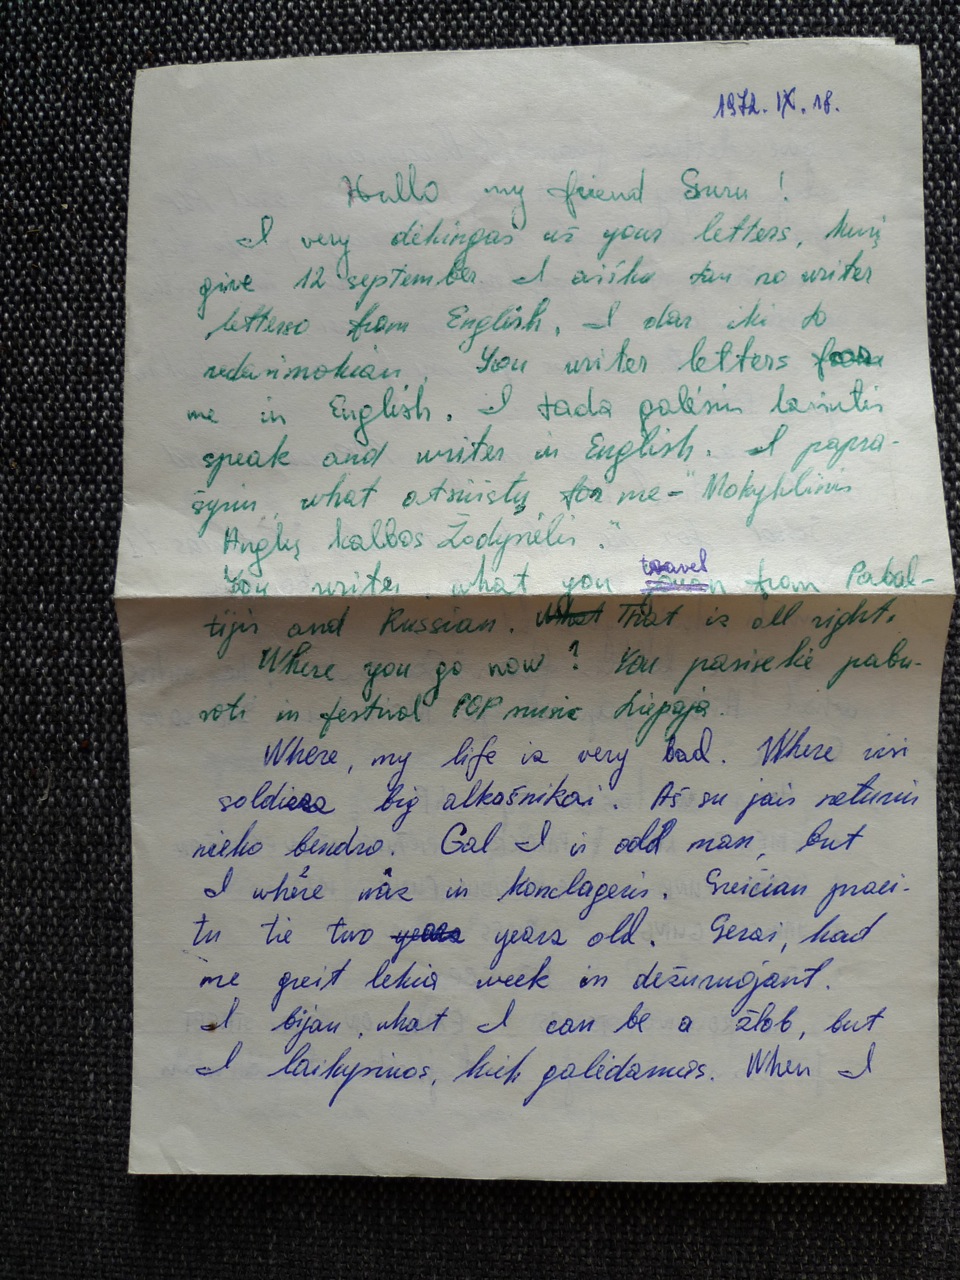 1972. IX. 18.
Hallo my friend Guru !
I very dėkingas už your letters, kurį
give 12 september. I aišku tau no writer
letters from English. I dar iki to
nedasimokiau. You writer letters for
me in English. I tada galėsiu lavintis
speak and writer in English. I papra-
šysiu, what atsiųstų for me - "Mokyklinis
Anglų kalbos Žodynėlis".
You writer what you travel from Pabal-
tijis and Russian. That is all right.
Where you go now ? You pasisekė pabu-
voti in festival POP music Liepaja.
Where, my life is very bad. Where visi
soldiers big alkašnikai. Aš su jais neturiu
nieko bendro. Gal I is odd man, but
I where was in konclageris. Greičiau praei-
tu tie two years old. Gerai, kad
me greit lekia week in dežuruojant.
I bijau, what I can be a žlob, but
I laikysiuos, kiek galėdamas. When I